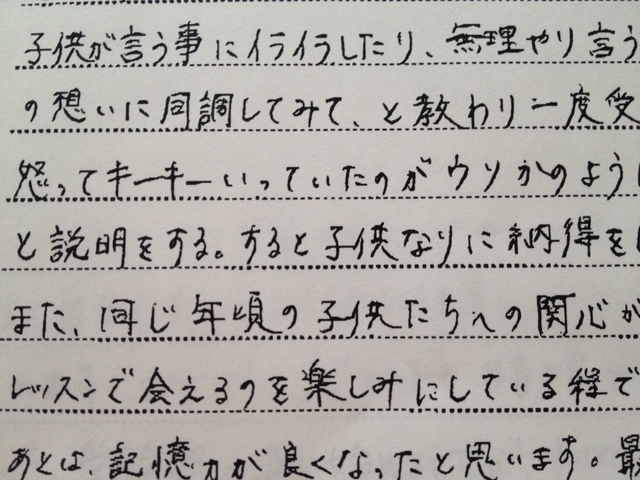 子供が言う事にイライラしたり、無理やり言う
の想いに同調してみて、と教わり一度受
怒ってキーキーいっていたのがウソかのように
と説明をする。すると子供なりに納得を
また、同じ年頃の子供たちへの関心が
レッスンで会えるのを楽しみにしている程で
あとは、記憶力が良くなったと思います。最